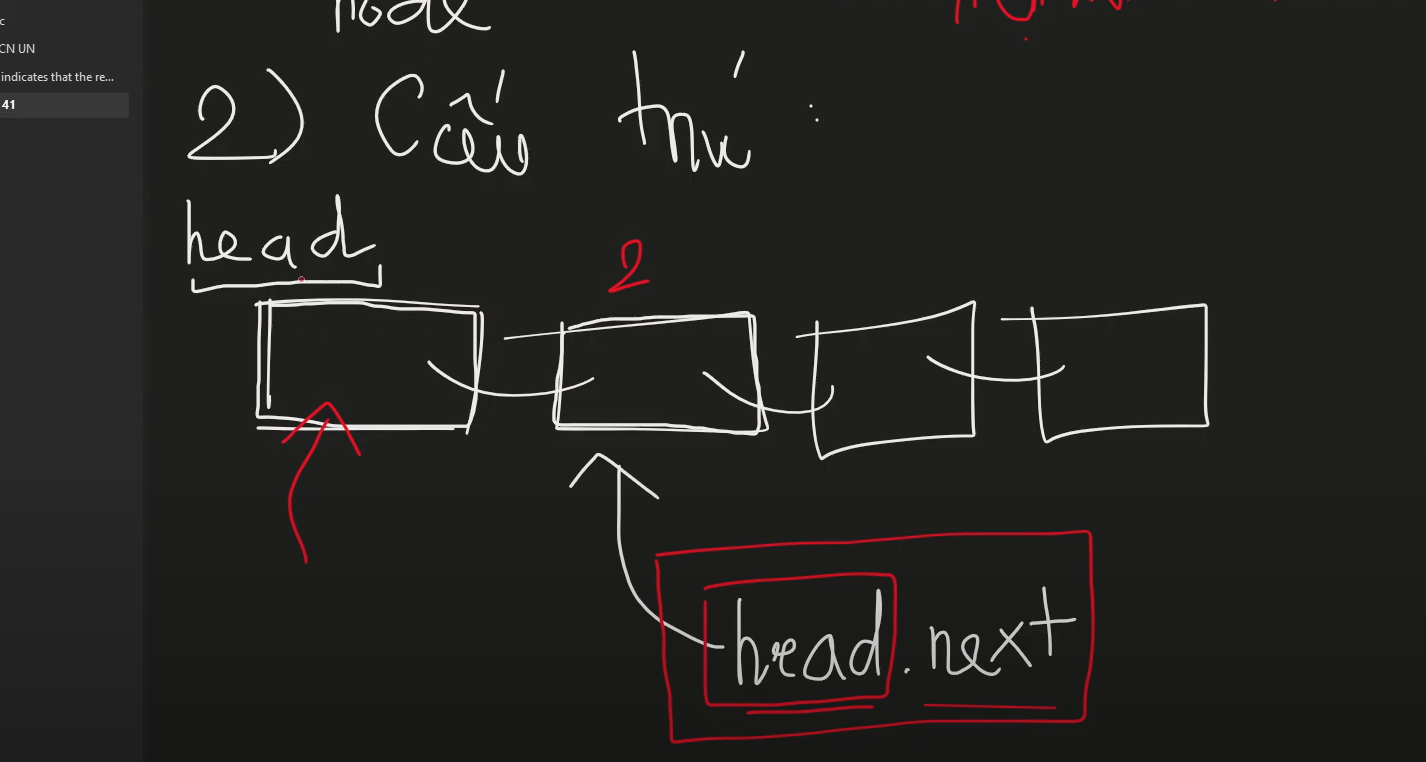 c
CN UN
indicates that the re...
41
node
2) Cấu trú :
head
2
head.next